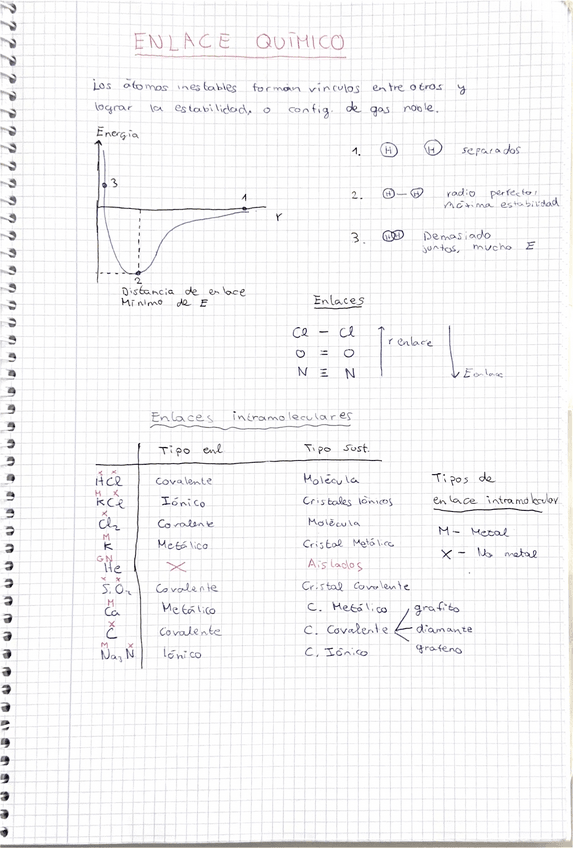 ENLACE QUÍMICO
Los átomos inestables forman vínculos entre otros y
lograr la estabilidad, o config. de gas noble.
Energía
3
1
r
2
Distancia de enlace
Mínimo de E
1. H H separados
2. H — H radio perfecto:
Máxima estabilidad
3. HH Demasiado
juntos, mucha E
Enlaces
Cl — Cl
O = O
N ≡ N
r enlace
E enlace
Enlaces intramoleculares
Tipo enl Tipo Sust.
X X
HCl Covalente Molécula
M X
KCl Iónico Cristales Iónicos
X
Cl₂ Covalente Molécula
M
K Metálico Cristal Metálico
GN
He X Aislados
X X
SiO₂ Covalente Cristal Covalente
M
Ca Metálico C. Metálico
X
C Covalente C. Covalente
grafito
diamante
grafeno
M X
Na₃N Iónico C. Iónico
Tipos de
enlace intramolecular
M – Metal
X – No metal